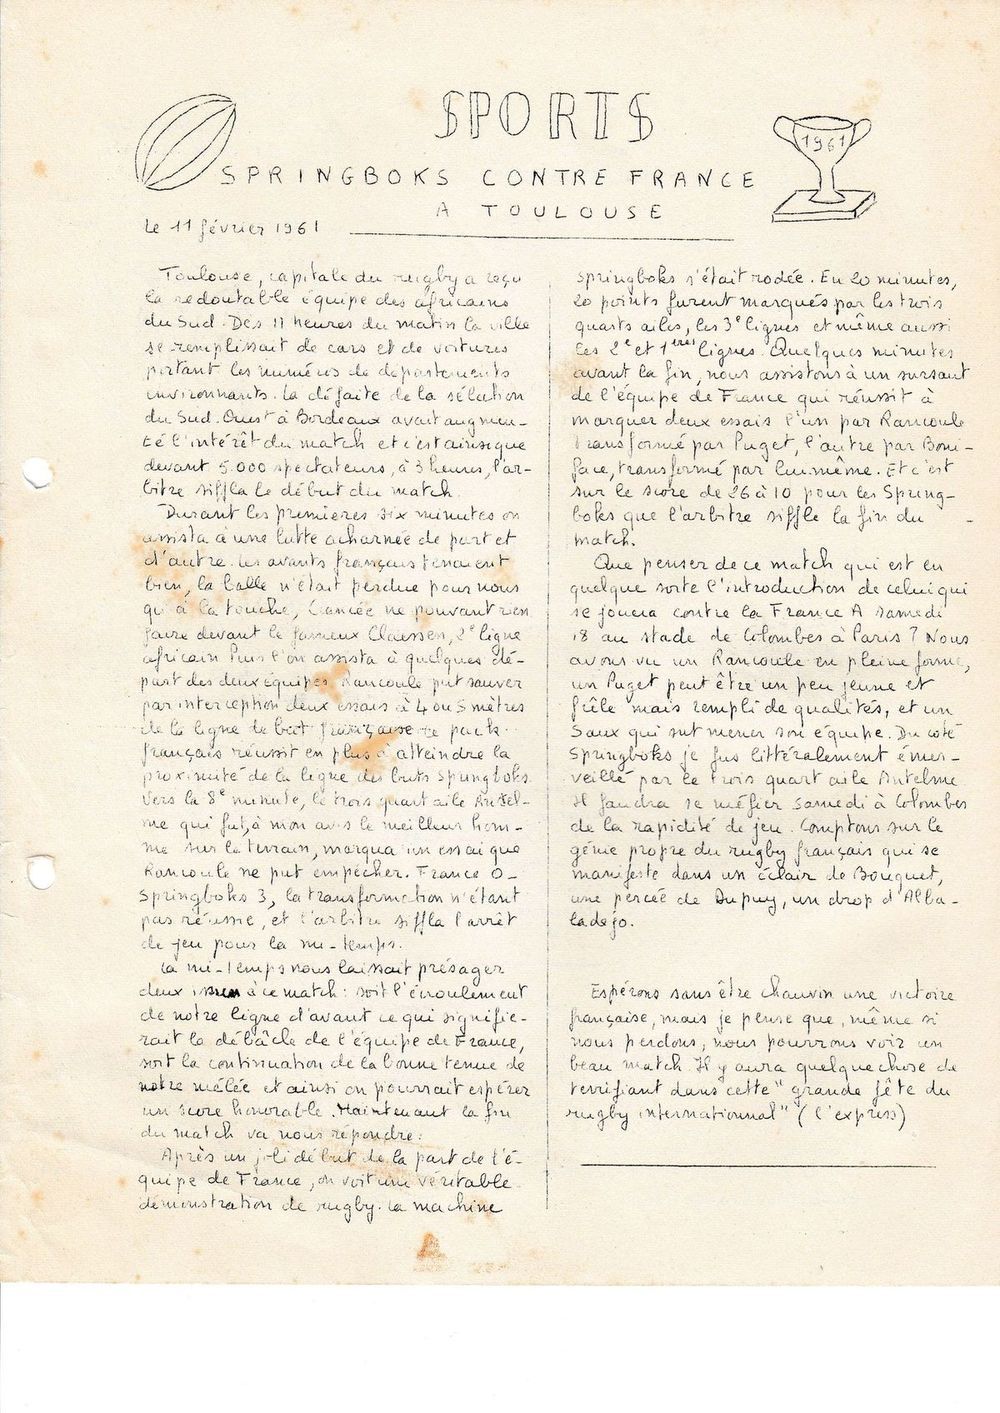 SPORTS
1961
SPRINGBOKS CONTRE FRANCE
A TOULOUSE
Le 11 février 1961
Toulouse, capitale du rugby a reçu
la redoutable équipe des africains
du Sud. Dès 11 heures du matin la ville
se remplissait de cars et de voitures
portant les numéros de départements
environnants. La défaite de la sélection
du Sud-Ouest à Bordeaux avait augmen-
té l'intérêt du match et c'est ainsi que
devant 5.000 spectateurs, à 3 heures, l'ar-
bitre siffla le début du match.
Durant les premières six minutes on
assista à une lutte acharnée de part et
d'autre. Les avants français tenaient
bien, la balle n'était perdue pour nous
qu'à la touche, Lancée ne pouvant rien
faire devant le fameux Claessen, 2e ligne
africain. Puis l'on assista à quelques dé-
part des deux équipes. Rancoule put sauver
par interception deux essais à 4 ou 5 mètres
de la ligne de but française. Le pack
français réussit en plus à atteindre la
proximité de la ligne des buts Springboks.
Vers la 8e minute, le trois quart aile Antel-
me qui fut, à mon avis le meilleur hom-
me sur le terrain, marqua un essai que
Rancoule ne put empêcher. France 0 -
Springboks 3, la transformation n'étant
pas réussie, et l'arbitre siffla l'arrêt
de jeu pour la mi-temps.
La mi-temps nous laissait présager
deux issues à ce match: soit l'écroulement
de notre ligne d'avant ce qui signifie-
rait la débâcle de l'équipe de France,
soit la continuation de la bonne tenue de
notre mêlée et ainsi on pourrait espérer
un score honorable. Maintenant la fin
du match va nous répondre:
Après un joli début de la part de l'é-
quipe de France, on voit une véritable
démonstration de rugby. La machine
springboks s'était rodée. En 20 minutes,
20 points furent marqués par les trois
quarts ailes, les 3e lignes et même aussi
les 2e et 1ères lignes. Quelques minutes
avant la fin, nous assistons à un sursaut
de l'équipe de France qui réussit à
marquer deux essais l'un par Rancoule
transformé par Puget, l'autre par Boni-
face, transformé par lui-même. Et c'est
sur le score de 26 à 10 pour les Spring-
boks que l'arbitre siffle la fin du
match.
Que penser de ce match qui est en
quelque sorte l'introduction de celui qui
se jouera contre la France A samedi
18 au stade de Colombes à Paris? Nous
avons vu un Rancoule en pleine forme,
un Puget peut être un peu jeune et
frêle mais rempli de qualités, et un
Saux qui sut mener son équipe. Du côté
Springboks je fus littéralement émer-
veillé par le trois quart aile Antelme.
Il faudra se méfier samedi à Colombes
de la rapidité de jeu. Comptons sur le
génie propre du rugby français qui se
manifeste dans un éclair de Bouquet,
une percée de Dupuy, un drop d'Alba-
ladejo.
Espérons sans être chauvin une victoire
française, mais je pense que, même si
nous perdons, nous pourrons voir un
beau match. Il y aura quelque chose de
terrifiant dans cette "grande fête du
rugby internationnal" (l'express)